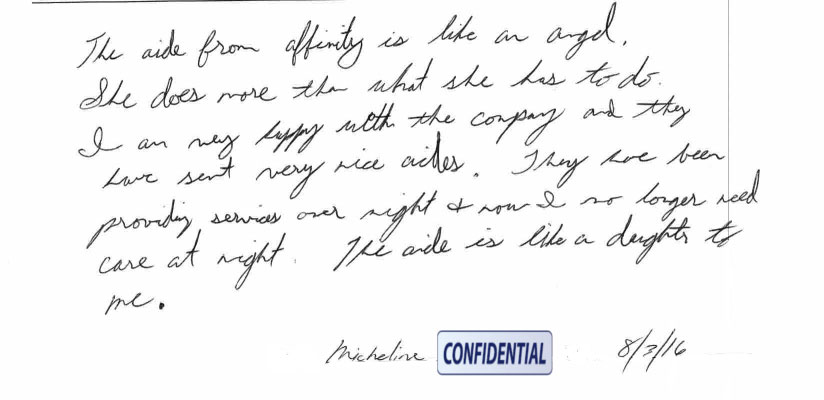 The aide from affinity is like an angel.
She does more than what she has to do.
I am very happy with the company and they
have sent very nice aides. They have been
providing services over night & now I no longer need
care at night. The aide is like a daughter to
me.
Micheline CONFIDENTIAL 8/3/16